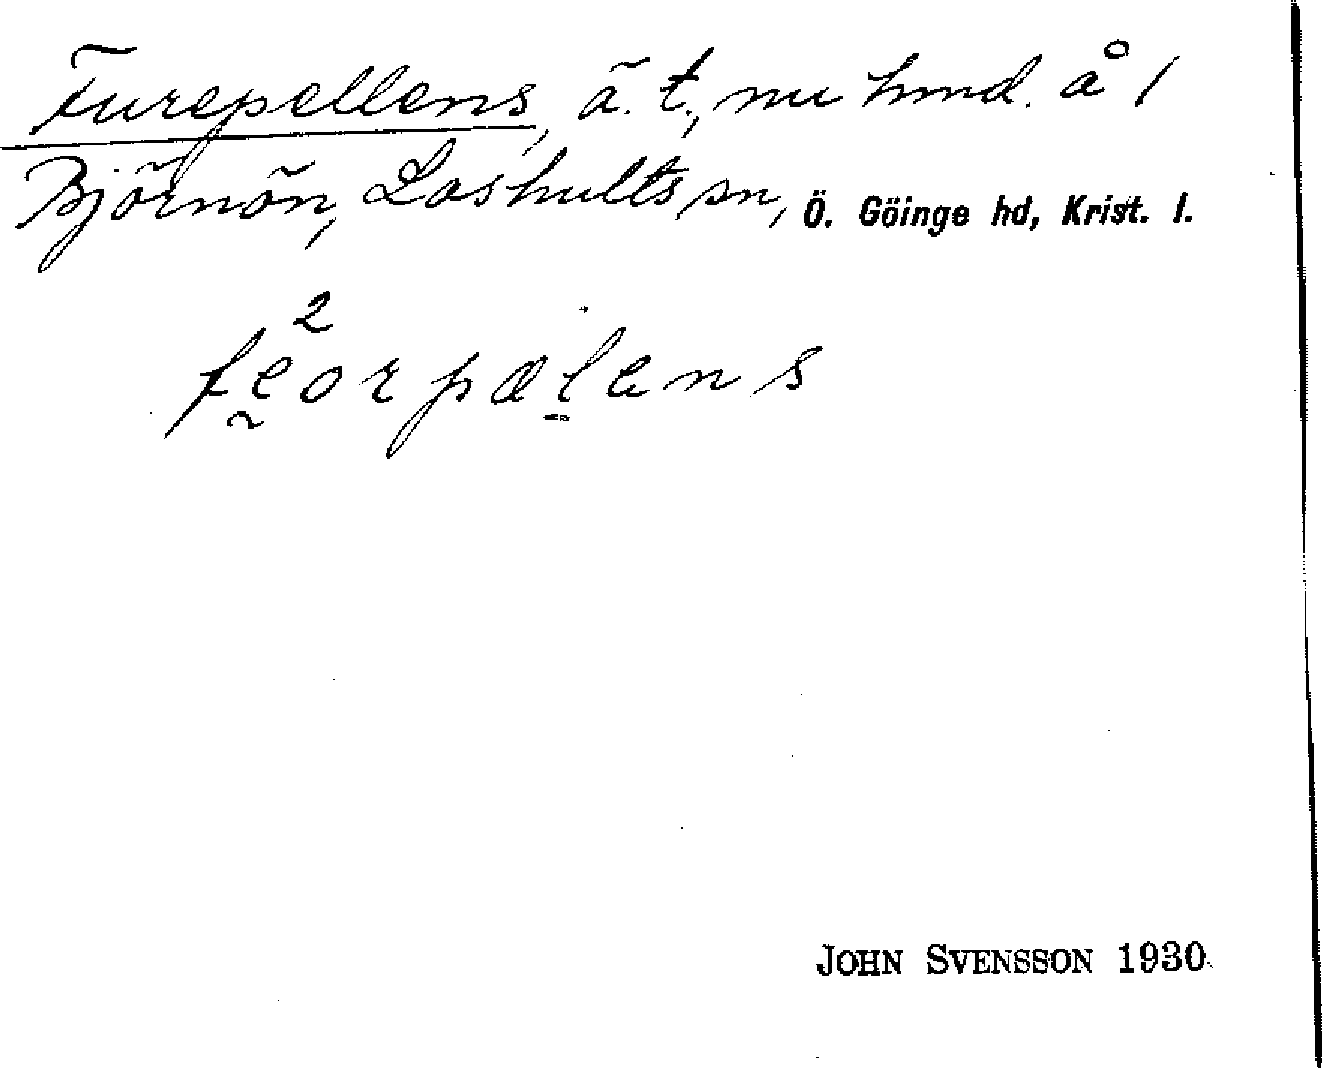 Furepellens, ä. t., nu hmd. å 1
Björnön, Loshults sn, Ö. Göinge hd, Krist. l.
fe²orpælens
JOHN SVENSSON 1930.